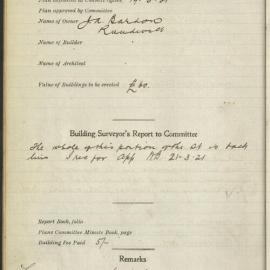 Plan approved by Committee
Name of Owner Jn Barson
Name of Builder
Name of Architect
Value of Buildings to be erected £60.
Building Surveyor's Report to Committee
The whole of this portion of the St is back
line I rec for App 21-3-21
Report Book, folio
Plans Committee Minute Book, page
Building Fee Paid 5/-
Remarks